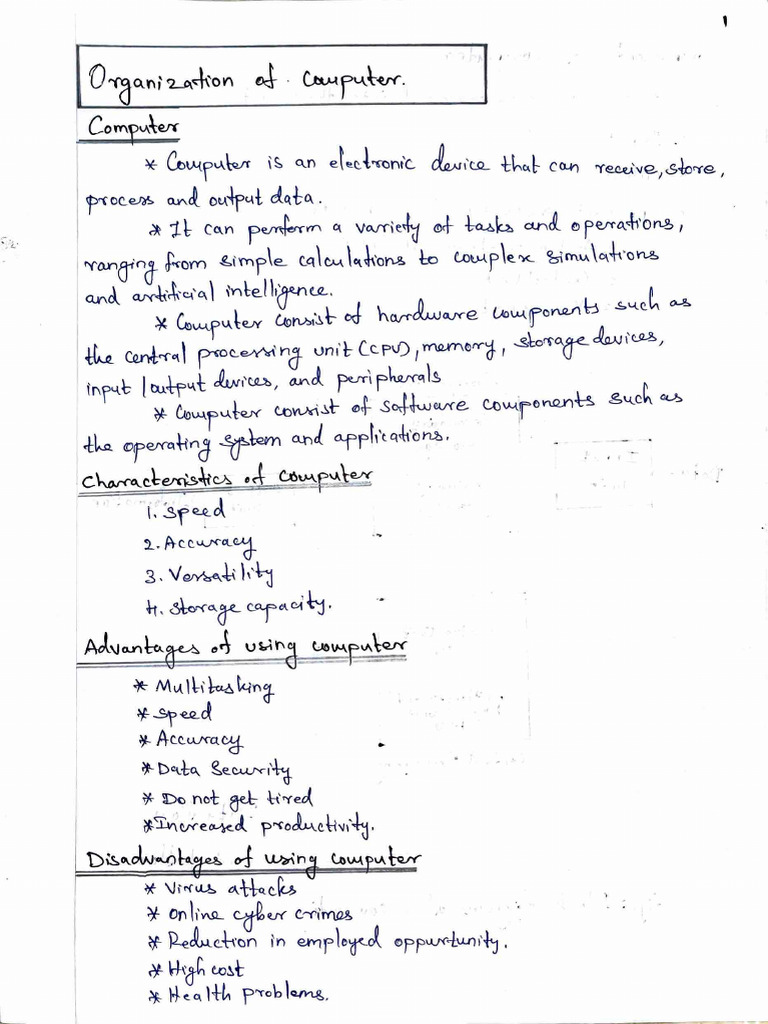 1
Organization of Computer.
Computer
* Computer is an electronic device that can receive, store,
process and output data.
* It can perform a variety of tasks and operations,
ranging from simple calculations to complex simulations
and artificial intelligence.
* Computer consist of hardware components such as
the central processing unit (CPU), memory, storage devices,
input / output devices, and peripherals
* Computer consist of software components such as
the operating system and applications.
Characteristics of computer
1. Speed
2. Accuracy
3. Versatility
4. Storage capacity.
Advantages of using computer
* Multitasking
* Speed
* Accuracy
* Data Security
* Do not get tired
* Increased productivity.
Disadvantages of using computer
* Virus attacks
* Online cyber crimes
* Reduction in employed oppurtunity.
* High cost
* Health problems.